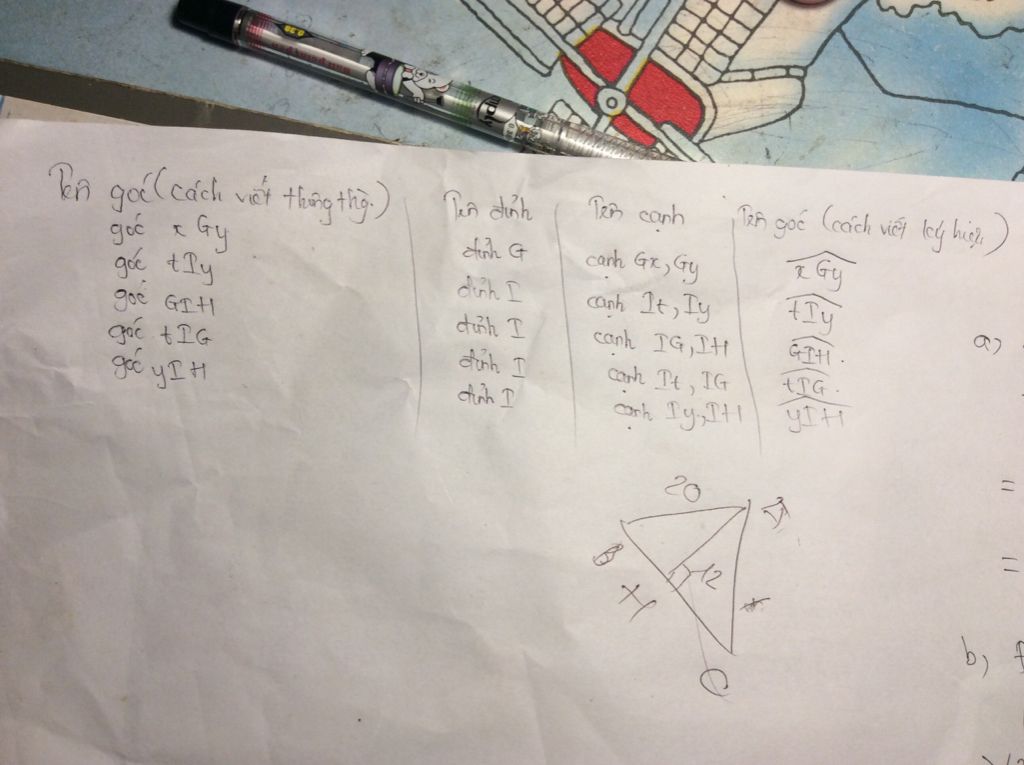 Tên góc (cách viết thông thg.) Tên đỉnh Tên cạnh Tên góc (cách viết ký hiệu)
góc xGy đỉnh G cạnh Gx, Gy xGy
góc tIy đỉnh I cạnh It, Iy tIy
góc GIH đỉnh I cạnh IG, IH GIH.
góc tIG đỉnh I cạnh It, IG tIG.
góc yIH đỉnh I cạnh Iy, IH yIH
a)
20
=
B
12
=
b)
C